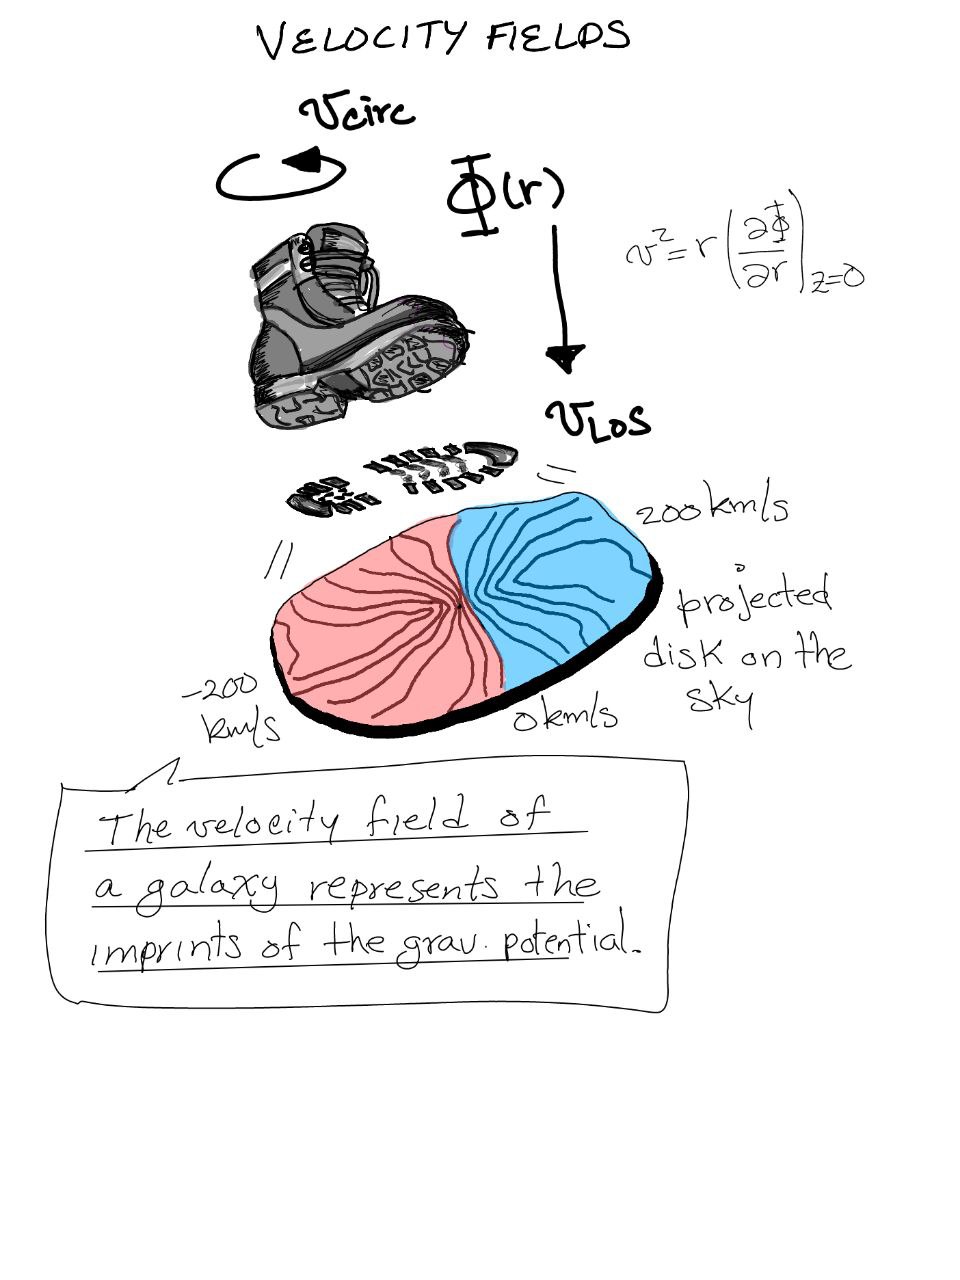 VELOCITY FIELDS
vcirc
Φ(r)
v²=r(∂Φ/∂r)|z=0
vLOS
200km/s
projected
disk on the
sky
-200
km/s
0km/s
The velocity field of
a galaxy represents the
imprints of the grav. potential.